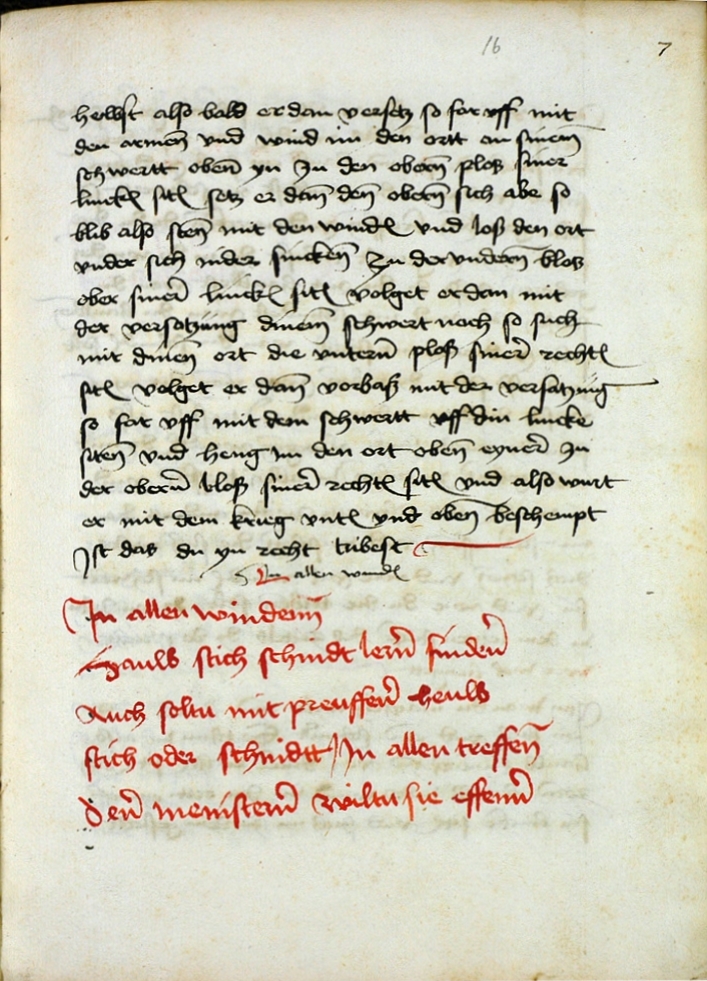 16
7
helbst also bald er dan versetz so far uff mit
den armen̄ vnd wind im den ortt an sinem̄
schwertt oben̄ yn Zu den obern̄ ploß siner
linckn̄ sitn̄ setz er dan̄ den̄ obern̄ stich abe so
blib also sten̄ mit den windn̄ vnd loß den ort
vnder sich nider sincken̄ Zu der vndern̄ bloß
ober siner̄ linckn̄ sitn̄ volget er dan mit
der versatzūng dinem̄ schwert noch so such
mit dinen̄ ort die vntern̄ ploß siner̄ rechtn̄
sitn̄ volget er dan̄ vorbaß mit der versatzūng
so far vff mit dem schwertt vff din lincke
siten̄ vnd heng im den ort oben̄ eyner̄ Zu
der obern̄ bloß siner̄ rechtn̄ sitn̄ vnd also wurt
er mit dem krieg vntn̄ vnd oben̄ beschempt
Ist das du yn recht tribest
In allen windn̄
In allen windenn̄
Hauw stich schnidt lern̄ finden̄
Auch soltu mit preuffen̄ heuw
stich oder schnidtt In allen treffen̄
Den̄ meistern̄ wiltu sie effenn̄